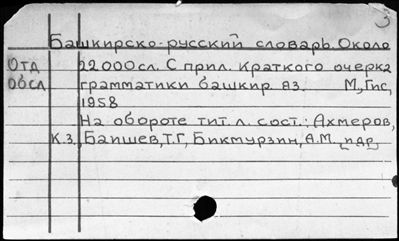 3
Башкирско-русский словарь. Около
Отд 22000 сл. С прил. краткого очерка
обсл грамматики башкир. яз. М., Гис,
1958
На обороте тит. л. сост.: Ахмеров,
К.З., Баишев, Т.Г., Бикмурзин, А.М. [и др.]